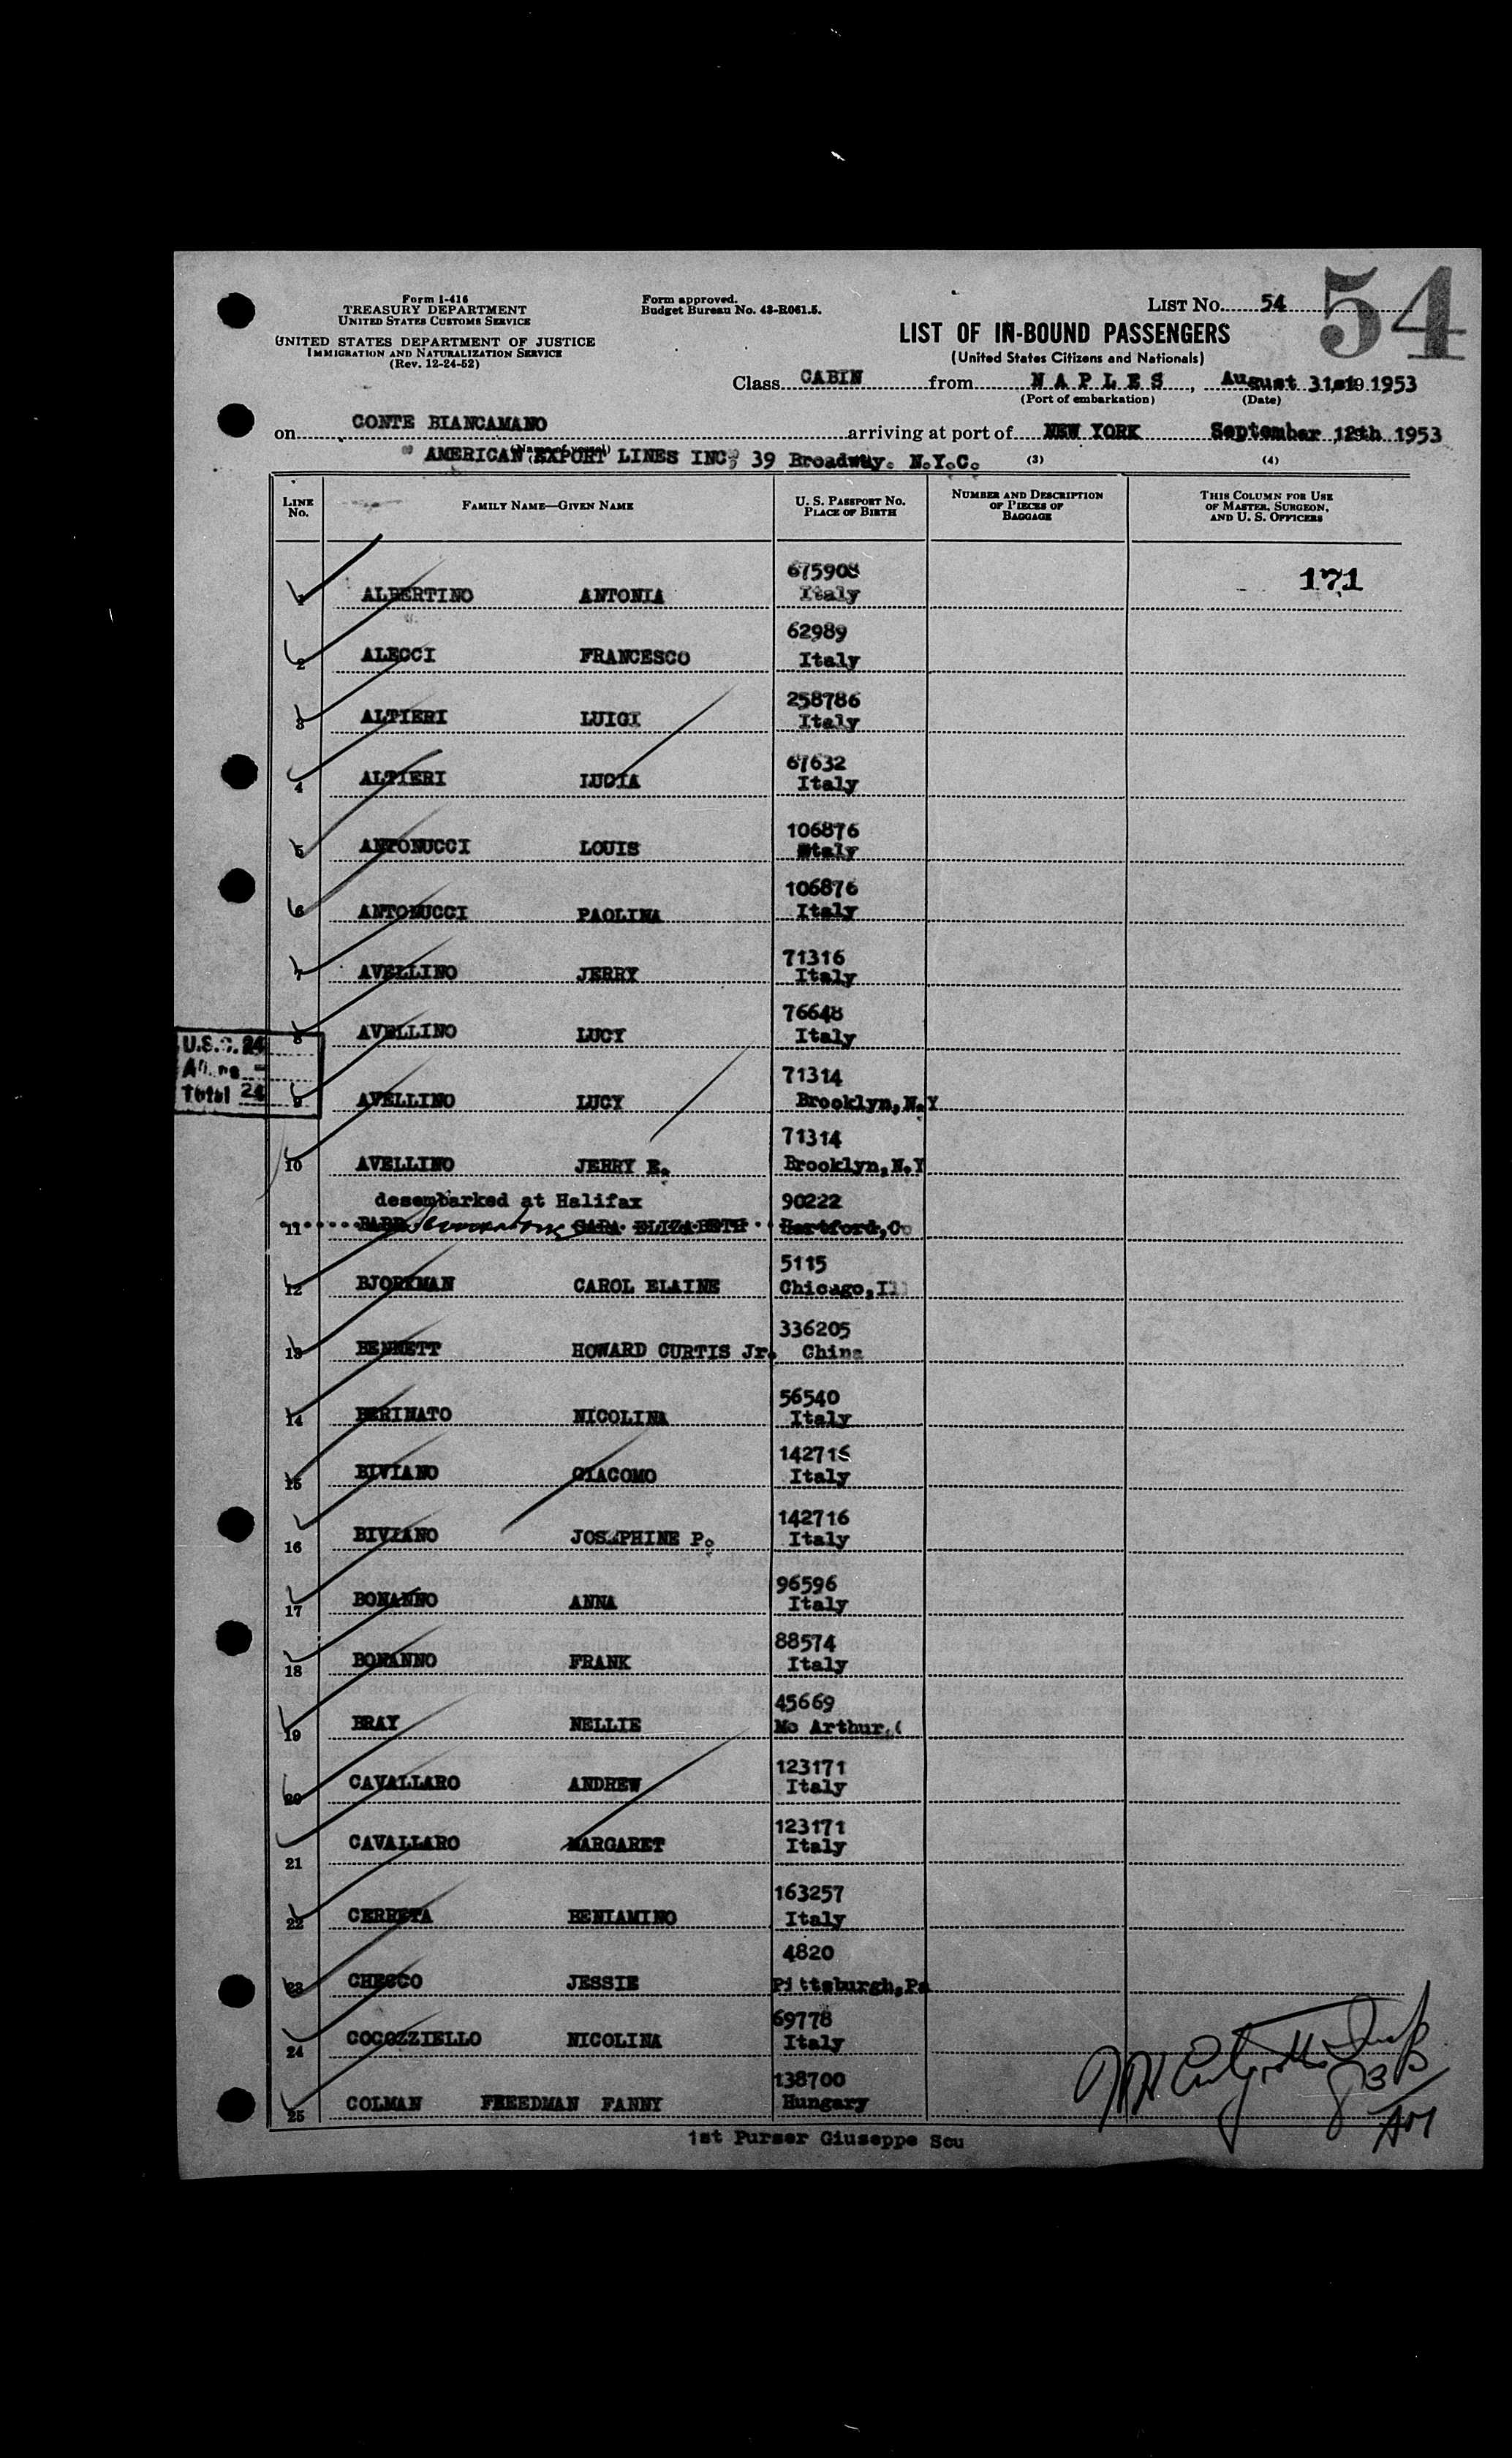 Form I-416
TREASURY DEPARTMENT
UNITED STATES CUSTOMS SERVICE
UNITED STATES DEPARTMENT OF JUSTICE
IMMIGRATION AND NATURALIZATION SERVICE
(Rev. 12-24-52)
Form approved.
Budget Bureau No. 43-R061.5.
LIST NO. 54
54
LIST OF IN-BOUND PASSENGERS
(United States Citizens and Nationals)
Class CABIN from NAPLES, August 31st 19 1953
(Port of embarkation) (Date)
on CONTE BIANCAMANO arriving at port of NEW YORK September 12th 1953
(Name of vessel)
AMERICAN EXPORT LINES INC; 39 Broadway. N.Y.C. (3) (4)
LINE No. FAMILY NAME—GIVEN NAME U. S. PASSPORT NO. PLACE OF BIRTH NUMBER AND DESCRIPTION OF PIECES OF BAGGAGE THIS COLUMN FOR USE OF MASTER, SURGEON, AND U. S. OFFICERS
675908 171
1 ALBERTINO ANTONIA Italy
62989
2 ALECCI FRANCESCO Italy
258786
3 ALTIERI LUIGI Italy
67632
4 ALTIERI LUCIA Italy
106876
5 ANTONUCCI LOUIS Italy
106876
6 ANTONUCCI PAOLINA Italy
71316
7 AVELLINO JERRY Italy
76648
8 AVELLINO LUCY Italy
U.S.C. 24
Total 24
71314
9 AVELLINO LUCY Brooklyn, N.Y
71314
10 AVELLINO JERRY E. Brooklyn, N.Y
desembarked at Halifax 90222
11 BARR SARA ELIZABETH Hartford, Co
5115
12 BJORKMAN CAROL ELAINE Chicago, Ill
336205
13 BENNETT HOWARD CURTIS Jr. China
56540
14 BERINATO NICOLINA Italy
142716
15 BIVIANO GIACOMO Italy
142716
16 BIVIANO JOSEPHINE P. Italy
96596
17 BONANNO ANNA Italy
88574
18 BONANNO FRANK Italy
45669
19 BRAY NELLIE Mc Arthur, (
123171
20 CAVALLARO ANDREW Italy
123171
21 CAVALLARO MARGARET Italy
163257
22 CERRETA BENIAMINO Italy
4820
23 CHECCO JESSIE Pittsburgh, Pa
69778
24 COCOZZIELLO NICOLINA Italy
138700
25 COLMAN FREEDMAN FANNY Hungary
1st Purser Giuseppe Scu